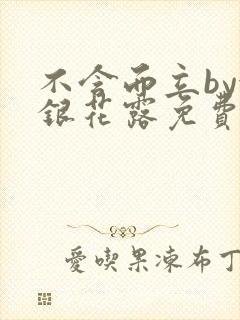 不舍而立by
銀花露免費
愛喫果凍布丁